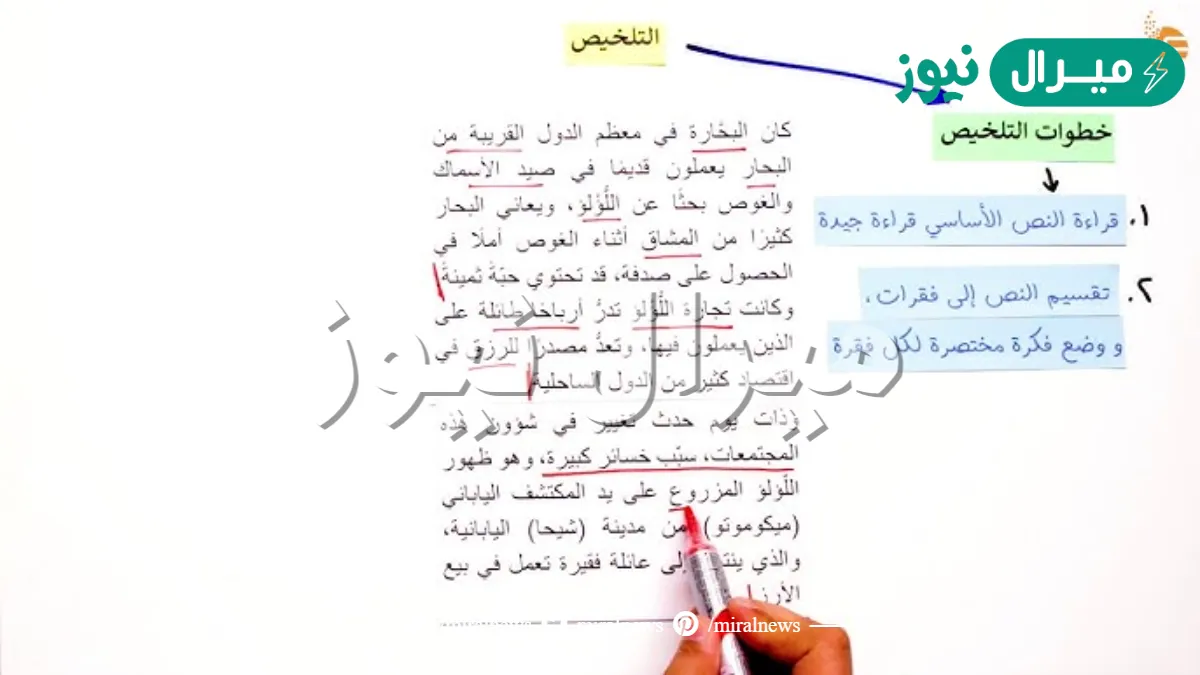 التلخيص
ميرال نيوز
خطوات التلخيص
١. قراءة النص الأساسي قراءة جيدة
٢. تقسيم النص إلى فقرات،
و وضع فكرة مختصرة لكل فقرة
كان البحّارة في معظم الدول القريبة من
البحار يعملون قديمًا في صيد الأسماك
والغوص بحثًا عن اللُّؤلؤ، ويعاني البحار
كثيرًا من المشاق أثناء الغوص أملًا في
الحصول على صدفة، قد تحتوي حبّةً ثمينةً
وكانت تجارة اللُّؤلؤ تدرُّ أرباحًا طائلة على
الذين يعملون فيها، وتعدُّ مصدرًا للرزق في
اقتصاد كثير من الدول الساحلية
وذات يوم حدث تغيير في شؤون هذه
المجتمعات، سبّب خسائر كبيرة، وهو ظهور
اللّؤلؤ المزروع على يد المكتشف الياباني
(ميكوموتو) من مدينة (شيحا) اليابانية،
والذي إلى عائلة فقيرة تعمل في بيع
الأرز
ميرال نيوز
/miralnews